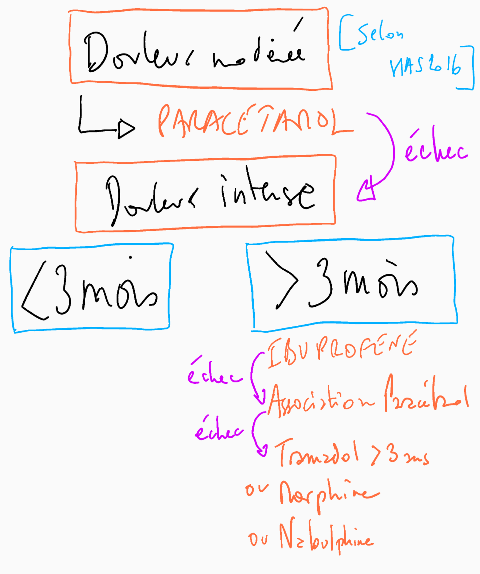 Douleur modérée
[Selon
HAS 2016]
PARACÉTAMOL
échec
Douleur intense
< 3 mois
> 3 mois
IBUPROFÈNE
échec
Association Paracétamol
échec
Tramadol > 3 ans
ou Morphine
ou Nalbuphine